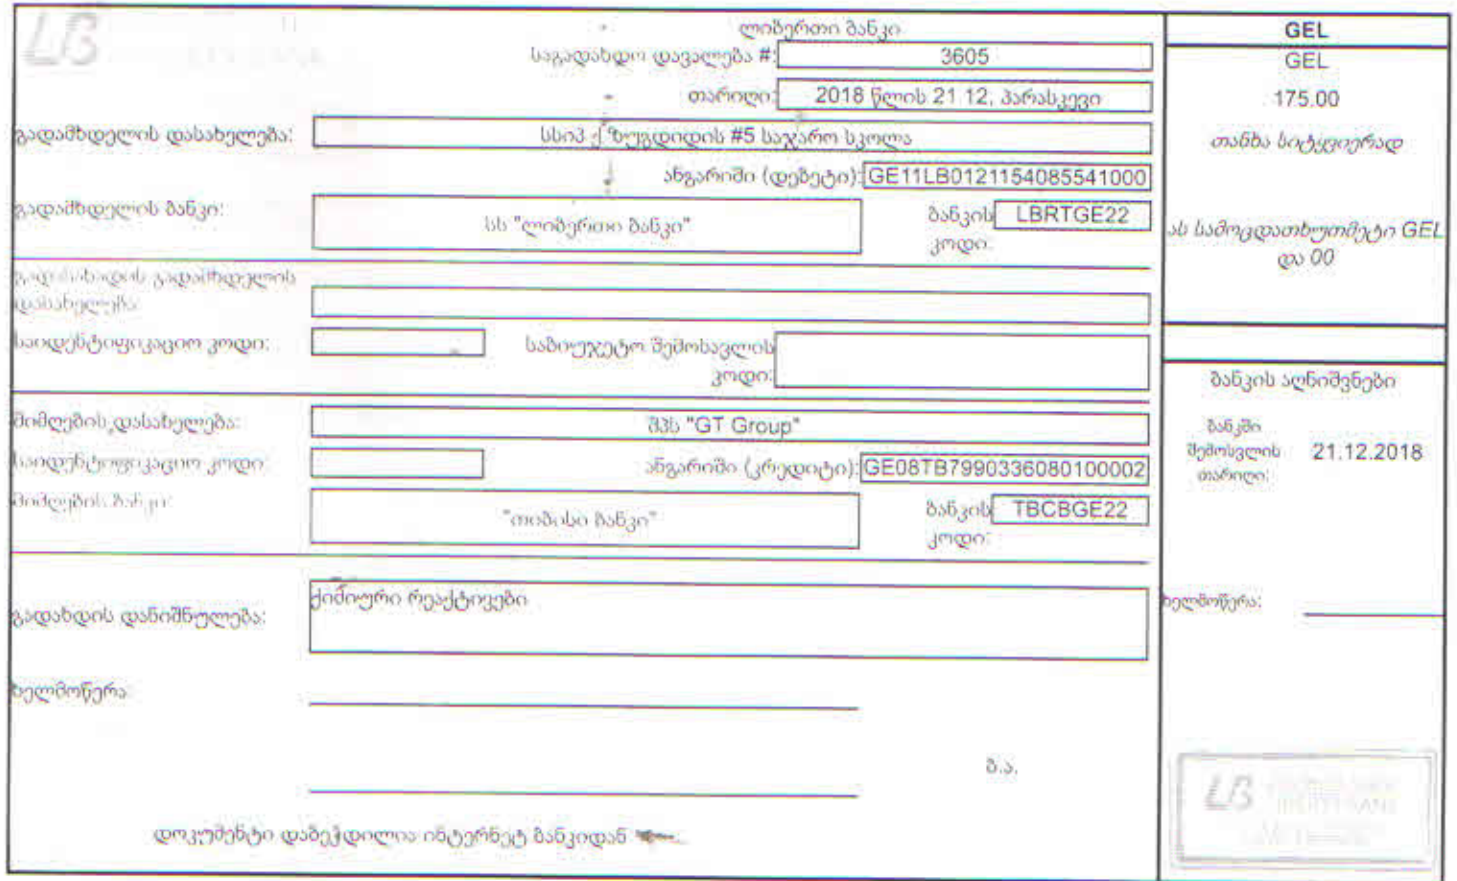 LB
ლიბერთი ბანკი
საგადახდო დავალება #: 3605
თარიღი: 2018 წლის 21 12, პარასკევი
გადამხდელის დასახელება: სსიპ ქ ზუგდიდის #5 საჯარო სკოლა
ანგარიში (დებეტი): GE11LB0121154085541000
გადამხდელის ბანკი: სს "ლიბერთი ბანკი" ბანკის კოდი: LBRTGE22
გადამხდელის
დასახელება:
საიდენტიფიკაციო კოდი: საბიუჯეტო შემოსავლის კოდი:
მიმღების დასახელება: შპს "GT Group"
საიდენტიფიკაციო კოდი: ანგარიში (კრედიტი): GE08TB7990336080100002
მიმღების ბანკი: "თიბისი ბანკი" ბანკის კოდი: TBCBGE22
გადახდის დანიშნულება: ქიმიური რეაქტივები
ხელმოწერა:
ბ.ა.
დოკუმენტი დაბეჭდილია ინტერნეტ ბანკიდან
GEL
GEL
175.00
თანხა სიტყვიერად
ას სამოცდათხუთმეტი GEL
და 00
ბანკის აღნიშვნები
ბანკში
შემოსვლის 21.12.2018
თარიღი:
ხელმოწერა:
LB